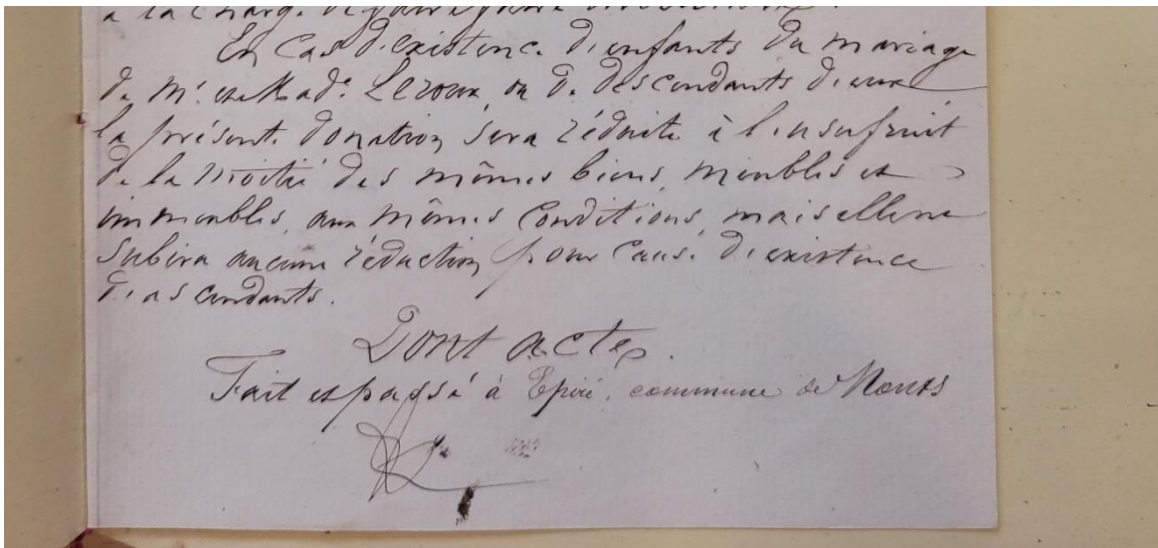 à la charge de faire faire inventaire.
En cas d'existence d'enfants du mariage
de Mr. et Made. Leroux, ou de descendants d'eux
la présente donation sera réduite à l'usufruit
de la moitié des mêmes biens, meubles et
immeubles, aux mêmes conditions, mais elle ne
subira aucune réduction pour cause d'existence
d'ascendants.
Dont acte.
Fait et passé à Epiré, commune de Monts